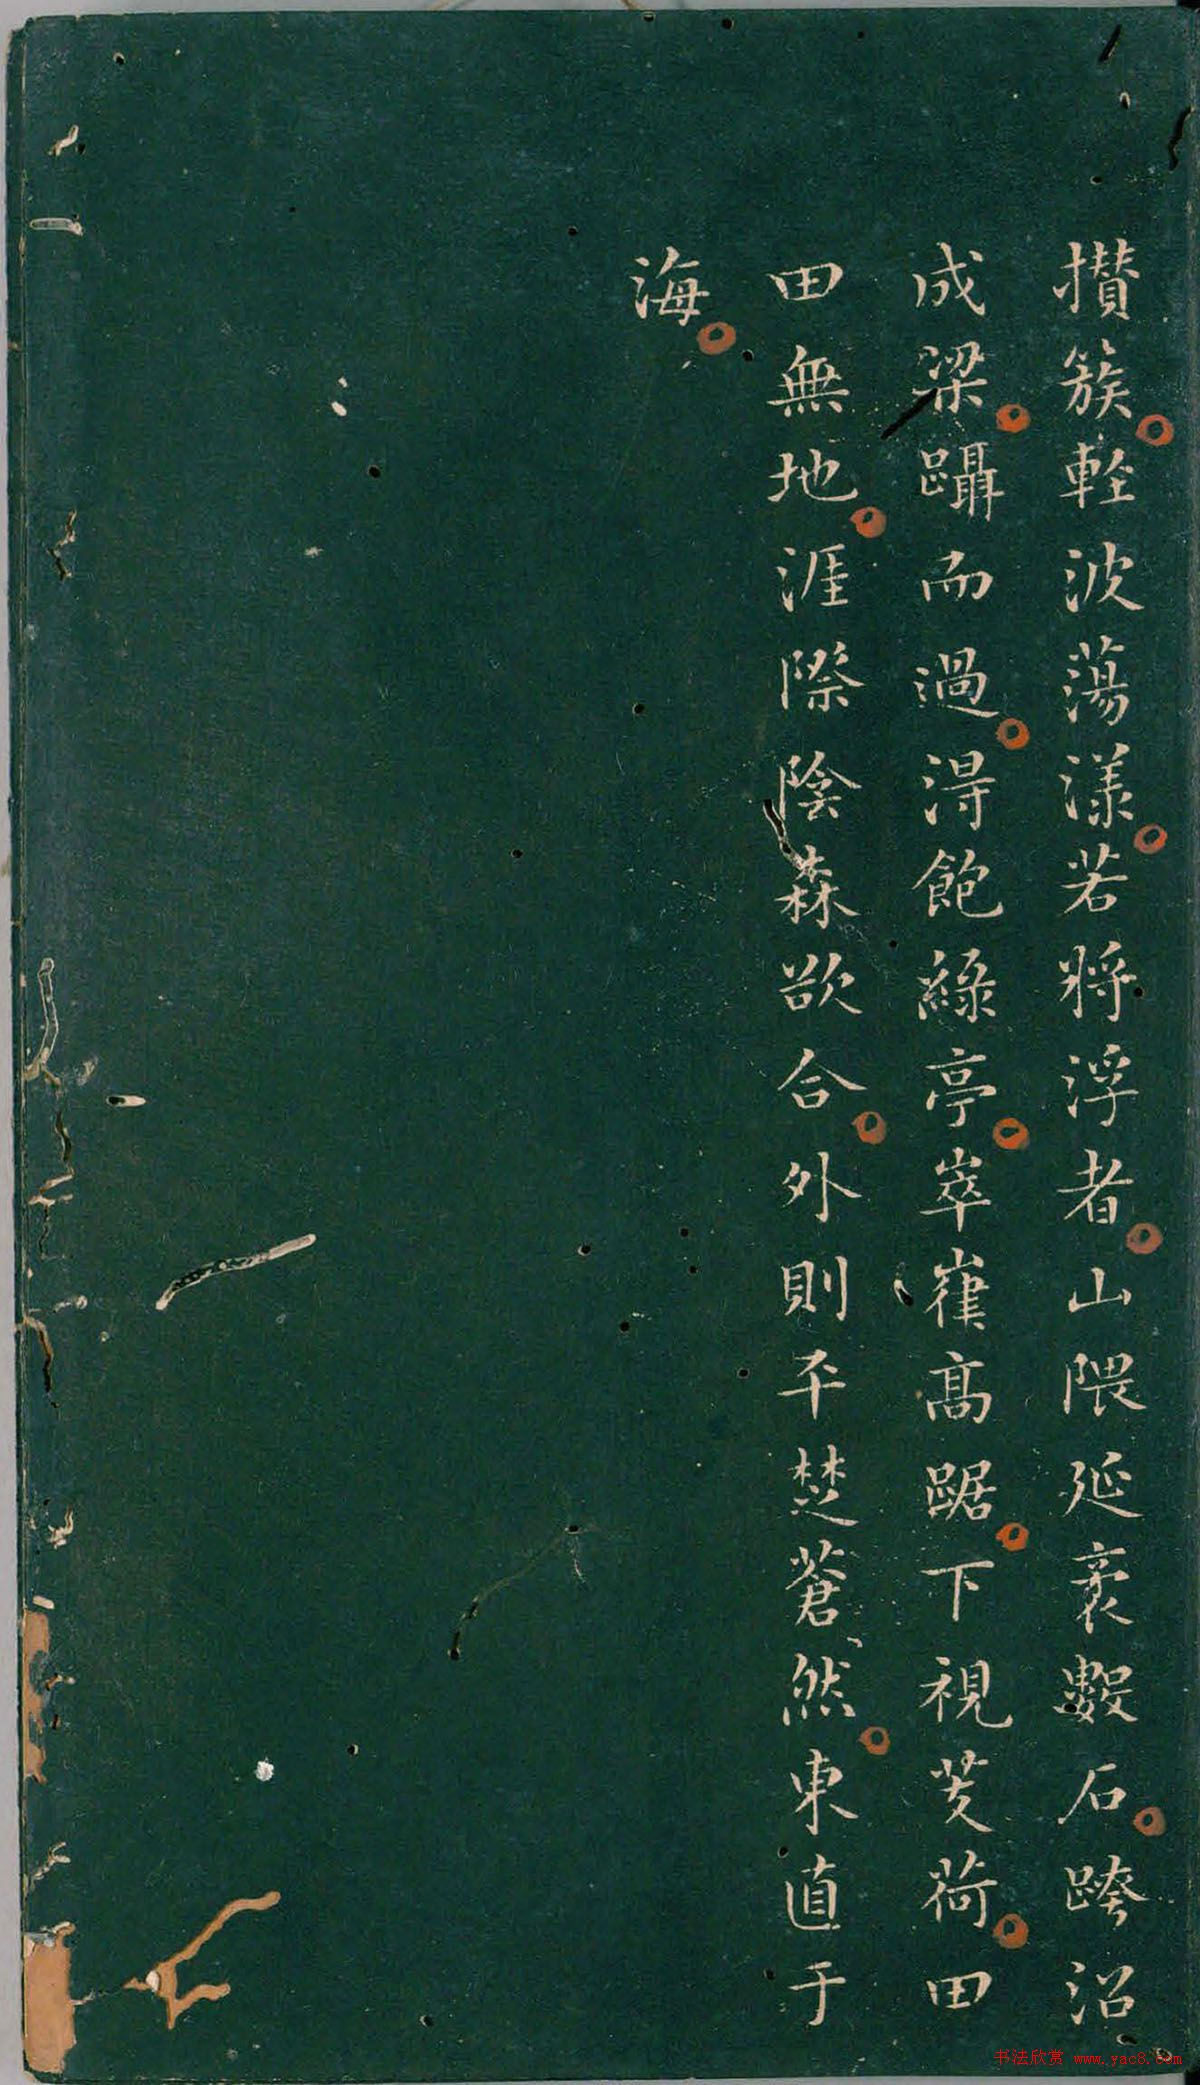 攅簇輊波蕩漾若將浮者山隈延袤數石跨沼
成梁躡而過淂飽綠亭崒嵂髙踞下視芰荷田
田無地涯際陰森欲合外則平楚蒼然東直于
海
书法欣赏 www.yac8.com